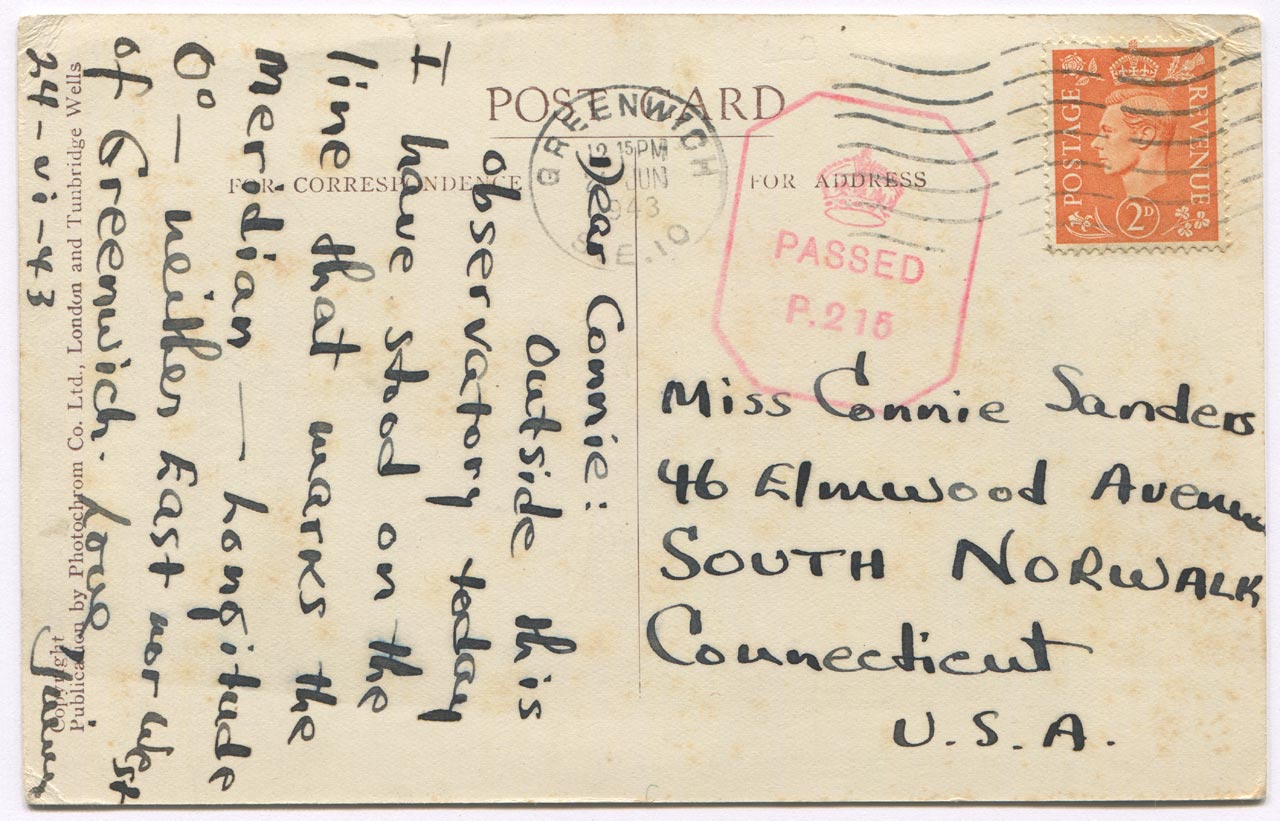 POST CARD
FOR CORRESPONDENCE
FOR ADDRESS
GREENWICH
12 15 PM
JUN
1943
S.E.10
PASSED
P.215
POSTAGE
REVENUE
2D
Dear Connie:
Outside this
observatory today
I have stood on the
line that marks the
Meridian — Longitude
0° — neither East nor West
of Greenwich.
24-vi-43
Miss Connie Sanders
46 Elmwood Avenue
SOUTH NORWALK
Connecticut
U.S.A.
Copyright
Publication by Photochrom Co. Ltd., London and Tunbridge Wells